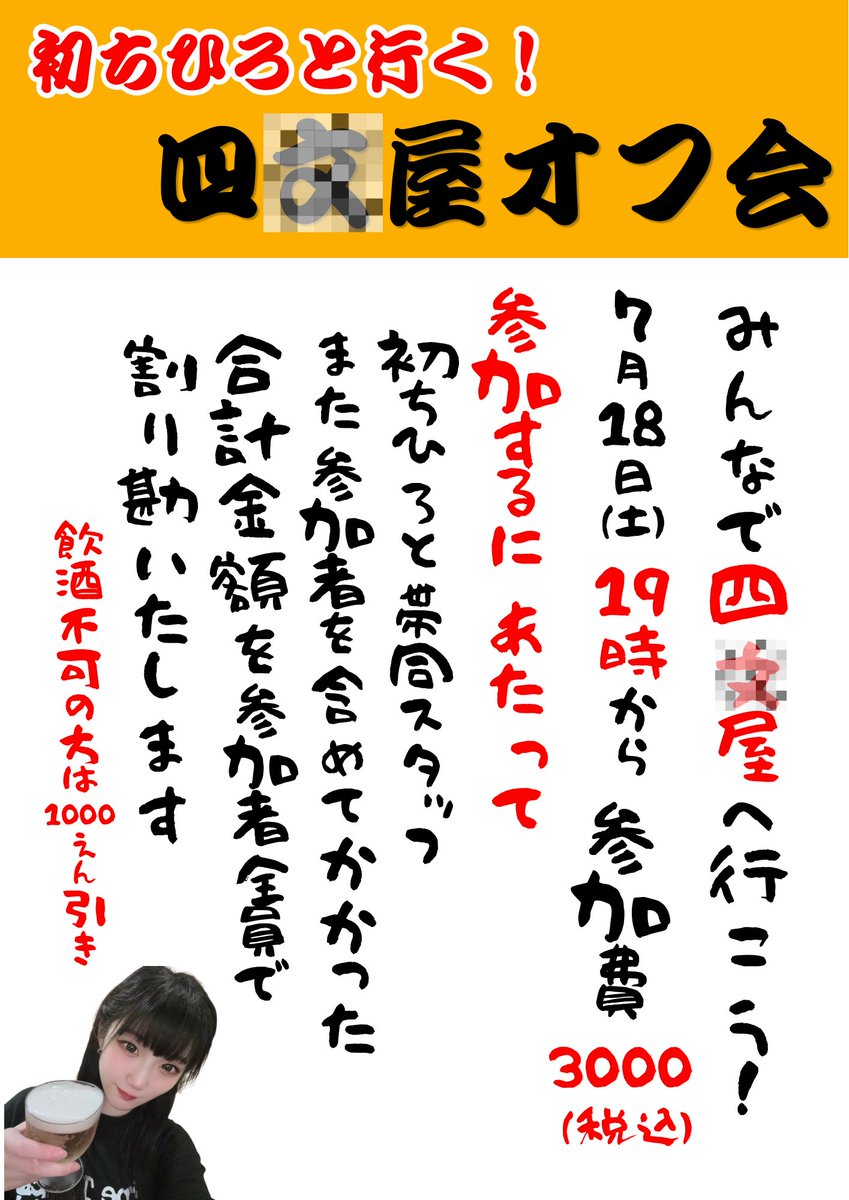 初ちひろと行く！
四文屋オフ会
みんなで四文屋へ行こう！
7月18日(土) 19時から 参加費 3000 (税込)
参加するにあたって
初ちひろと帯同スタッフ
また参加者を含めてかかった
合計金額を参加者全員で
割り勘いたします
飲酒不可の方は1000えん引き